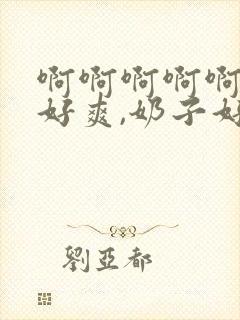 啊啊啊啊啊
好爽,奶子好
劉亞都